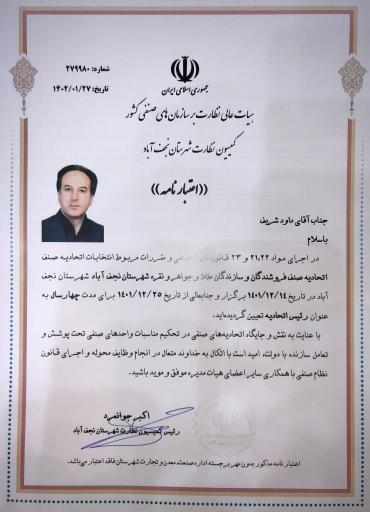 جمهوری اسلامی ایران
شماره: ۲۷۹۹۸۰
تاریخ: ۱۴۰۲/۰۱/۲۷
هیات عالی نظارت بر سازمان های صنفی کشور
کمیسیون نظارت شهرستان نجف آباد
((اعتبار نامه))
جناب آقای داود شریف
باسلام
در اجرای مواد ۲۱،۲۲ و ۲۳ قانون نظام صنفی و مقررات مربوط انتخابات اتحادیه صنف
اتحادیه صنف فروشندگان و سازندگان طلا و جواهر و نقره شهرستان نجف آباد شهرستان نجف
آباد در تاریخ ۱۴۰۱/۱۲/۱۴ برگزار و جنابعالی از تاریخ ۱۴۰۱/۱۲/۲۵ برای مدت چهارسال به
عنوان رئیس اتحادیه تعیین گردیده‌اید.
با عنایت به نقش و جایگاه اتحادیه‌های صنفی در تحکیم مناسبات واحدهای صنفی تحت پوشش و
تعامل سازنده با دولت، امید است با اتکال به خداوند متعال در انجام وظایف محوله و اجرای قانون
نظام صنفی با همکاری سایر اعضای هیات مدیره موفق و موید باشید.
اکبر جوانمرد
رئیس کمیسیون نظارت شهرستان نجف آباد
اعتبار نامه مذکور بدون مهر برجسته اداره صنعت، معدن و تجارت شهرستان فاقد اعتبار می‌باشد.